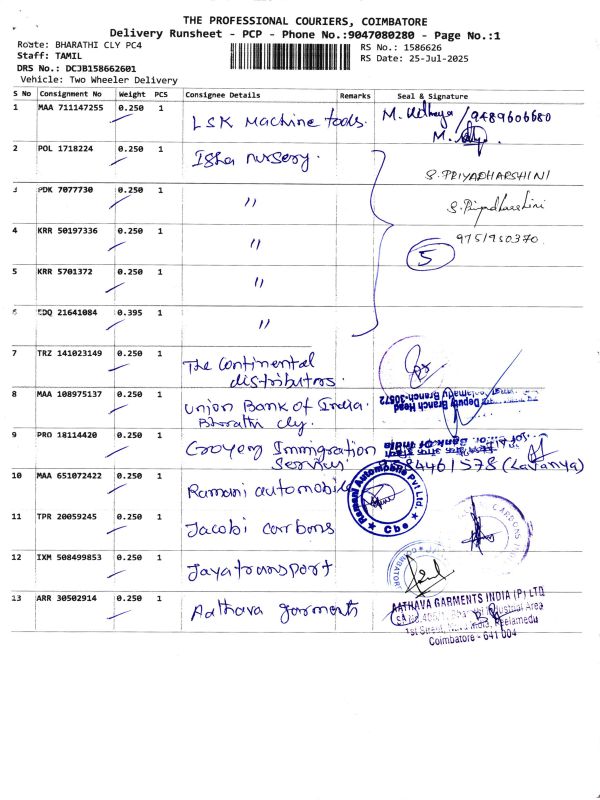 THE PROFESSIONAL COURIERS, COIMBATORE
Delivery Runsheet - PCP - Phone No.:9047080280 - Page No.:1
Route: BHARATHI CLY PC4
RS No.: 1586626
Staff: TAMIL
RS Date: 25-Jul-2025
DRS No.: DCJB158662601
Vehicle: Two Wheeler Delivery
S No Consignment No Weight PCS Consignee Details Remarks Seal & Signature
1 MAA 711147255 0.250 1 LSK Machine tools. M. /9489606680
M.
2 POL 1718224 0.250 1 Isha nursery.
S. PRIYADHARSHINI
3 PDK 7077730 0.250 1 "
S. Priyadharshini
4 KRR 50197336 0.250 1 " 9751950370.
5
5 KRR 5701372 0.250 1 "
6 EDQ 21641084 0.395 1 "
7 TRZ 141023149 0.250 1 The Continental
distributors.
8 MAA 108975137 0.250 1 Union Bank of India.
Bharathi cly.
Deputy Branch Head
Branch-30572
Bank Of India
9 PRO 18114420 0.250 1 Immigration
Services. 84461578 (Lavanya)
10 MAA 651072422 0.250 1 Ramani automobile
Ramani Automobile Pvt Ltd.
Cbe
11 TPR 20059245 0.250 1 Jacobi carbons
CARBONS
12 IXM 508499853 0.250 1 Jayatransport
COIMBATORE
13 ARR 30502914 0.250 1 Aathava garments
AATHAVA GARMENTS INDIA (P) LTD
Industrial Area
1st Street, Peelamedu
Coimbatore - 641 004